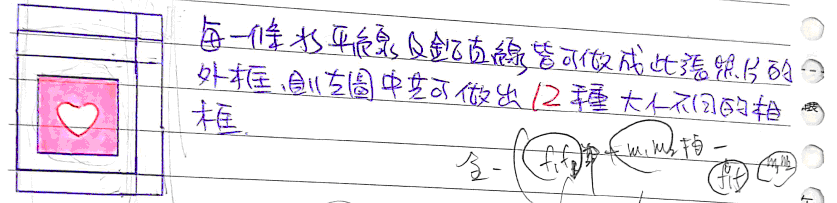 每一條水平線及鉛直線皆可做成此張照片的
外框,則左圖中共可做出12種大小不同的相
框.
全-(